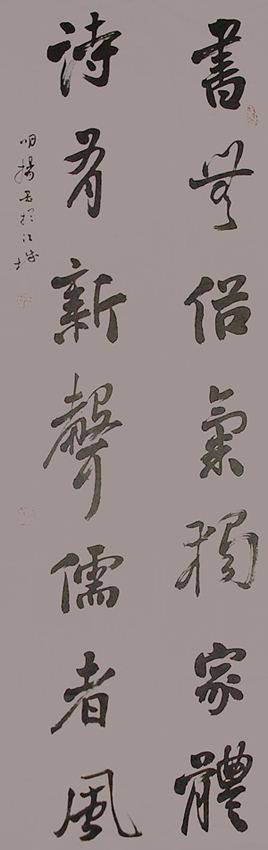 書無俗氣獨家體
詩有新聲儒者風
明揚書於江城